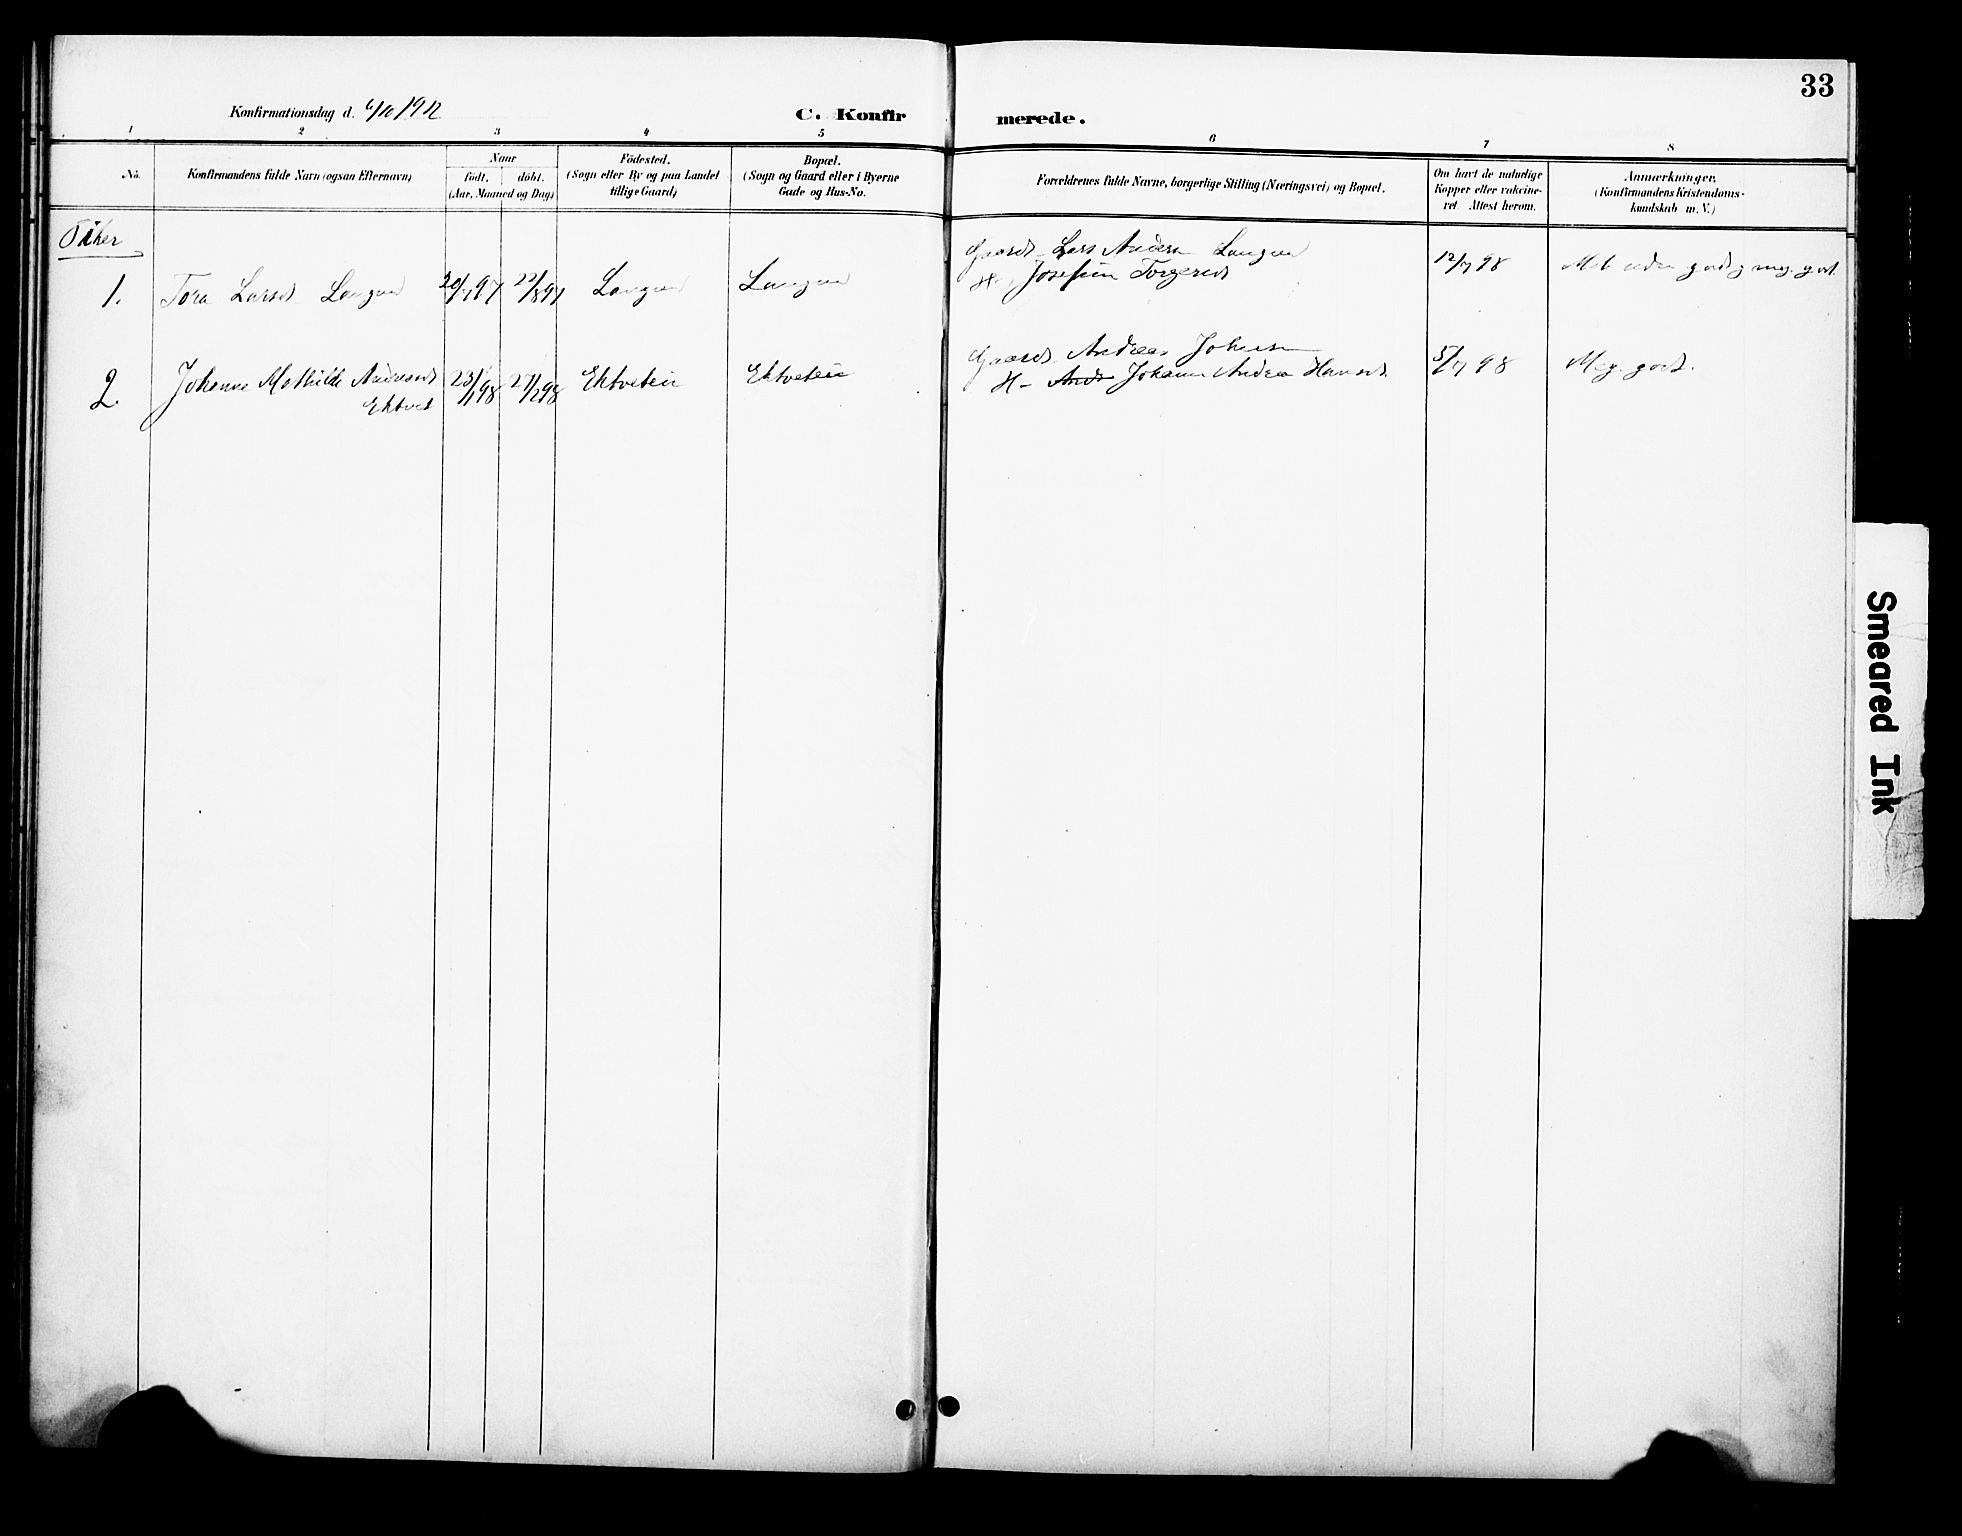 33
Konfirmationsdag d. 6/10 1912
C. Konfirmerede.
1 2 3 4 5 6 7 8
No.
Konfirmandens fulde Navn (ogsaa Efternavn)
Naar
födt. döbt.
(Aar, Maaned og Dag)
Födested.
(Sogn eller By og paa Landet
tillige Gaard)
Bopæl.
(Sogn og Gaard eller i Byerne
Gade og Hus-No.
Forældrenes fulde Navne, borgerlige Stilling (Næringsvei) og Bopæl.
Om havt de naturlige
Kopper eller vakcine-
ret. Attest herom.
Anmærkninger.
(Konfirmandens Kristendoms-
kundskab m. V.)
Piker
1. Tora Larsd. Langen 20/7 97 22/8 97 Langen Langen
Gaardb. Lars Anders. Langen
H. Josefine Torgersd.
12/7 98
god meg. godt
2. Johanne Mathilde Andreasd.
Ektvet
23/1 98 27/2 98 Ektvetén Ektvetén
Gaardb. Andreas Johansen
H- Johanne Andrea Hansd.
5/7 98
Meg. godt.
Smeared Ink